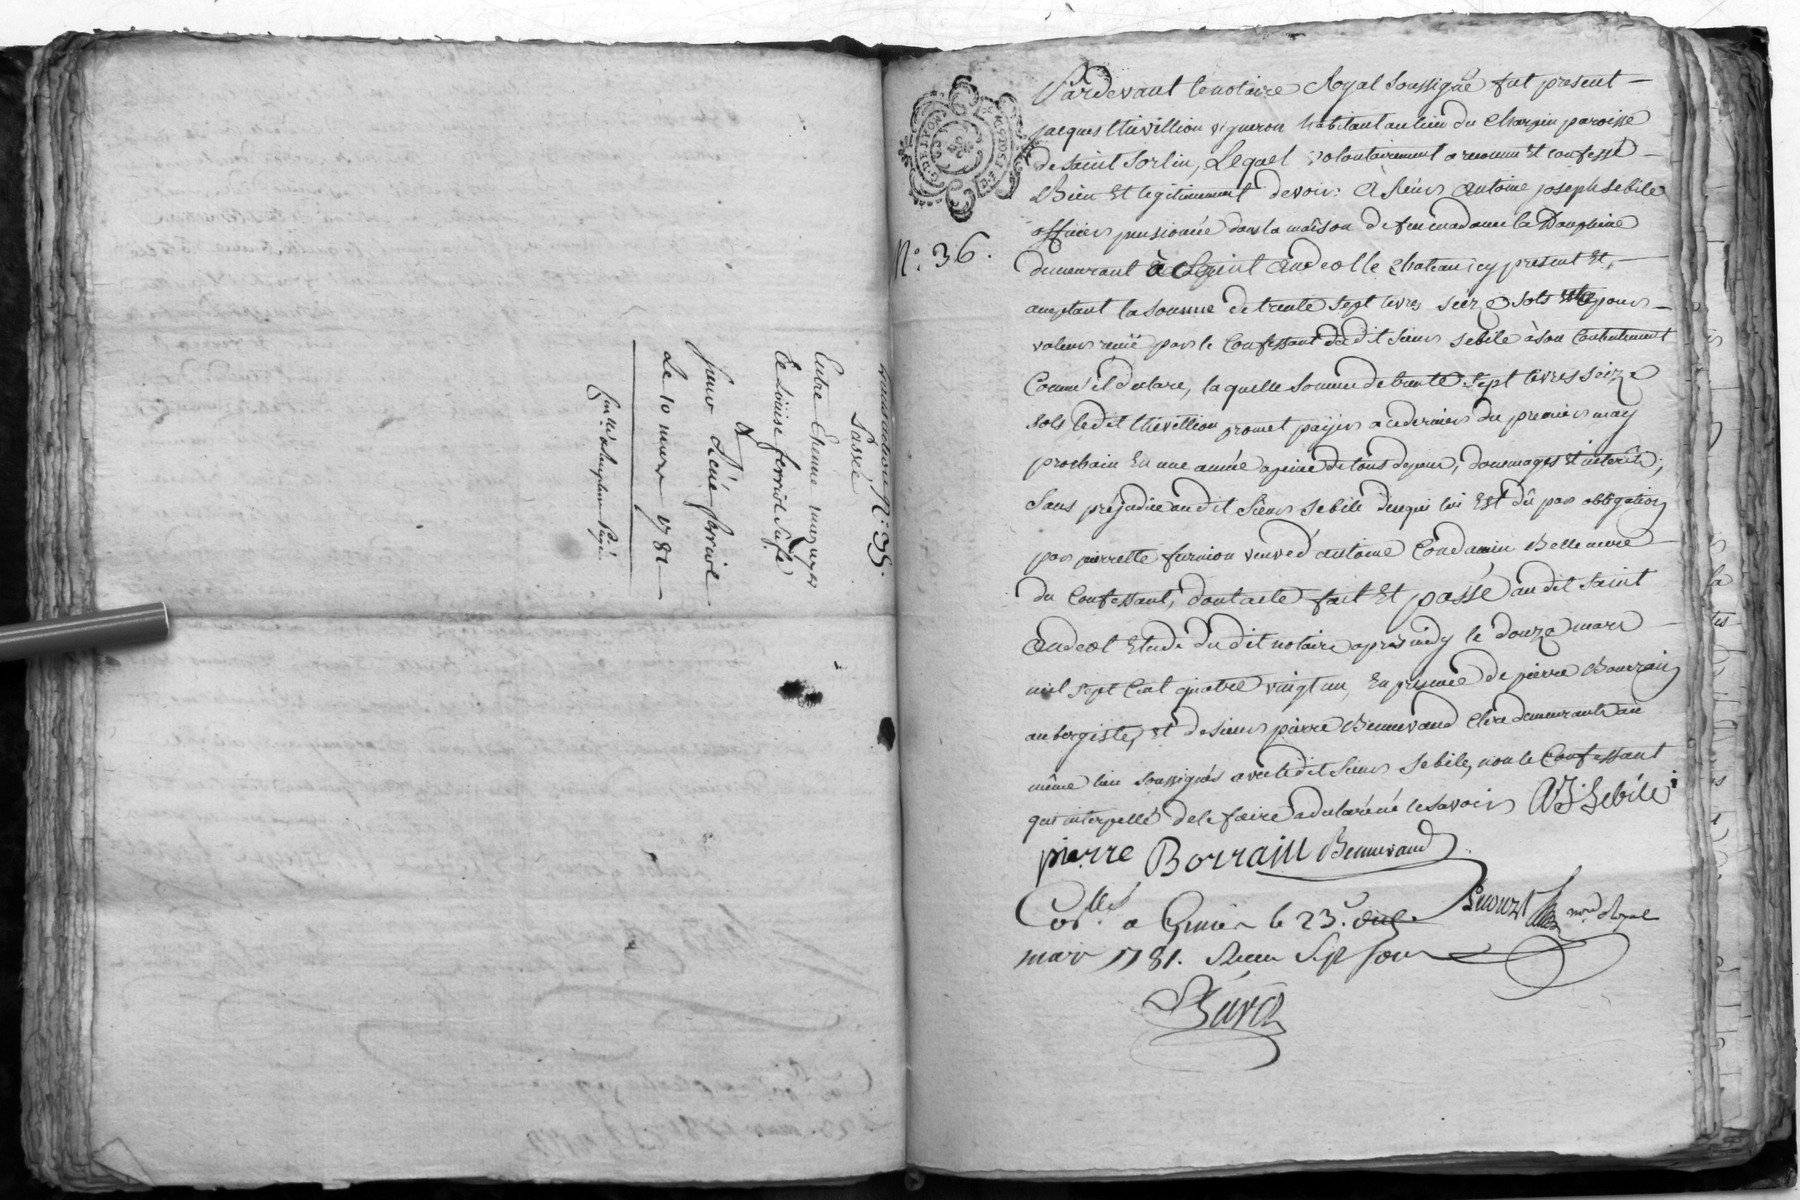 N.° 35.
Passée
Entre Etienne
Et Louise ferriol Sa fe.
&
Sieur Réné ferriol
Le 10 mars 1781
G. DE LYON
N.° 36.
Pardevant le notaire Royal soussigné fut present
jacques thivillion vigneron habitant au lieu du Charpin paroisse
de saint Sorlin, Lequel volontairement a reconnu Et confessé
Bien Et legitimement devoir à Sieur antoine joseph sebile
officier pensionné dans la maison de feu madame la Dauphine
demeurant à Saint andeol le chateau icy present Et
aceptant la somme de trente sept livres seize sols pour
valeur reçuë par le Confessant dudit sieur sebile à son Contentement
Comme il declare, laquelle somme de trente sept livres seize
sols ledit thivillion promet payer audernier du premier may
prochain En une année apeine de tous depens, dommages Et interêts;
sans préjudice audit sieur sebile de ce qui lui Est dû par obligation
par pierrette furnion veuve d'antoine Condamin Belle mere
du Confessant, dont acte fait Et passé au dit saint
andeol Etude dudit notaire apres midy le douze mars
mil sept Cent quatre vingt un, En presence de pierre Bourrain
aubergiste, et de sieur pierre Bennevaud clerc demeurants au
même lieu soussignés avec ledit sieur sebile, non le Confessant
qui interpellé de le faire a declaré ne le savoir AJ Sebile
pierre Borrain Bennevaud
Con.llé a Givors le 23. dud.
nore. Royal
mars 1781. Recu Sept sous